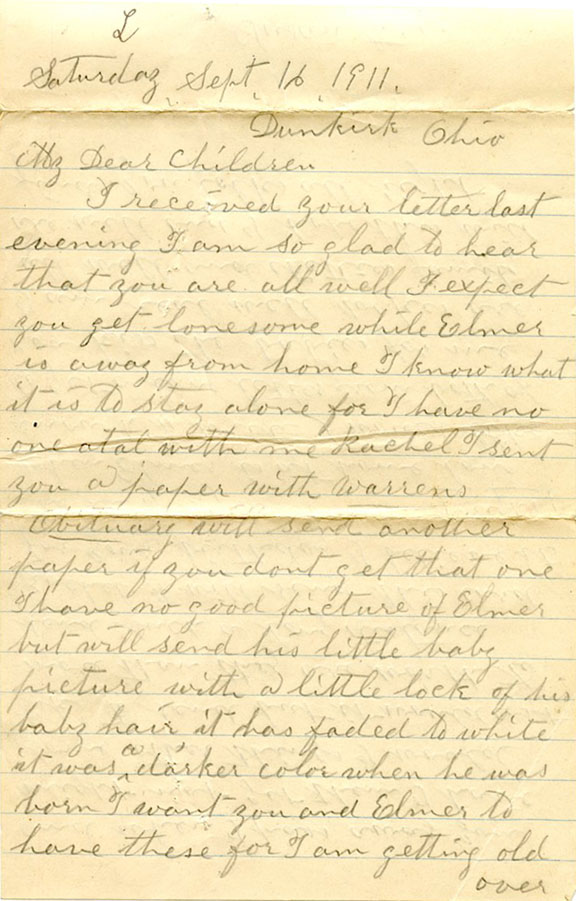 L
Saturday, Sept, 16, 1911.
Dunkirk Ohio
My Dear Children
I received your letter last
evening I am so glad to hear
that you are all well I expect
you get lonesome while Elmer
is away from home I know what
it is to stay alone for I have no
one atal with me Rachel I sent
you a paper with Warrens
Obituary will send another
paper if you dont get that one
I have no good picture of Elmer
but will send his little baby
picture with a little lock of his
baby hair it has faded to white
it was a darker color when he was
born I want you and Elmer to
have these for I am getting old
over